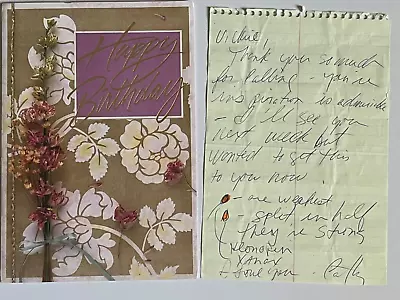 Happy
Birthday
Vickie,
Thank you so much
for calling - you're
inspiration is admirable
- I'll see you
next week but
wanted to get this
to you now.
- one weakest
- split in half
They're strong
Klonopin
Xanax
+ love you.